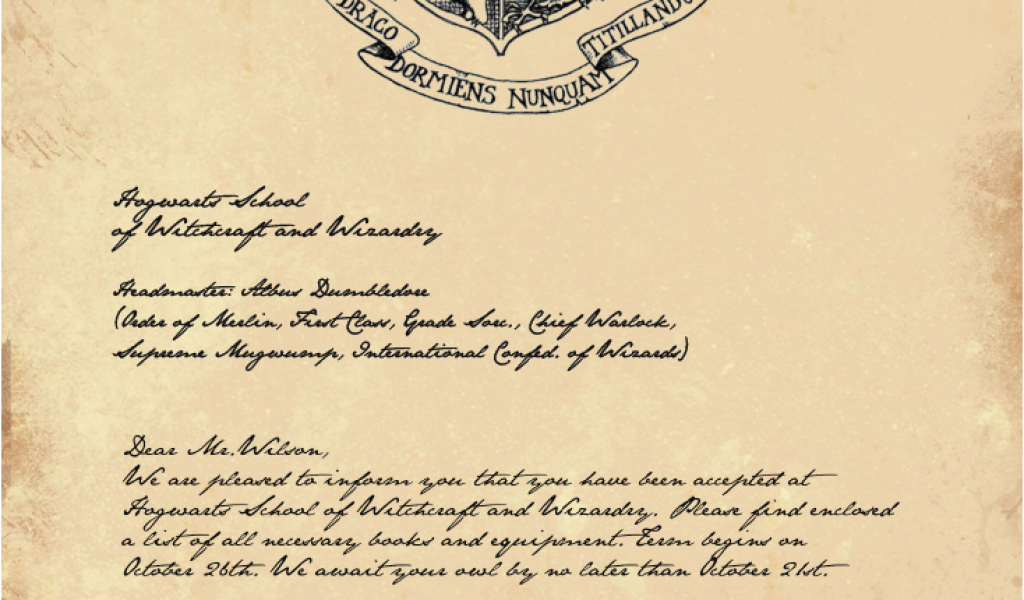 DRACO DORMIENS NUNQUAM TITILLANDU
Hogwarts School
of Witchcraft and Wizardry
Headmaster: Albus Dumbledore
(Order of Merlin, First Class, Grade Sorc., Chief Warlock,
Supreme Mugwump, International Confed. of Wizards)
Dear Mr.Wilson,
We are pleased to inform you that you have been accepted at
Hogwarts School of Witchcraft and Wizardry. Please find enclosed
a list of all necessary books and equipment. Term begins on
October 26th. We await your owl by no later than October 21st.